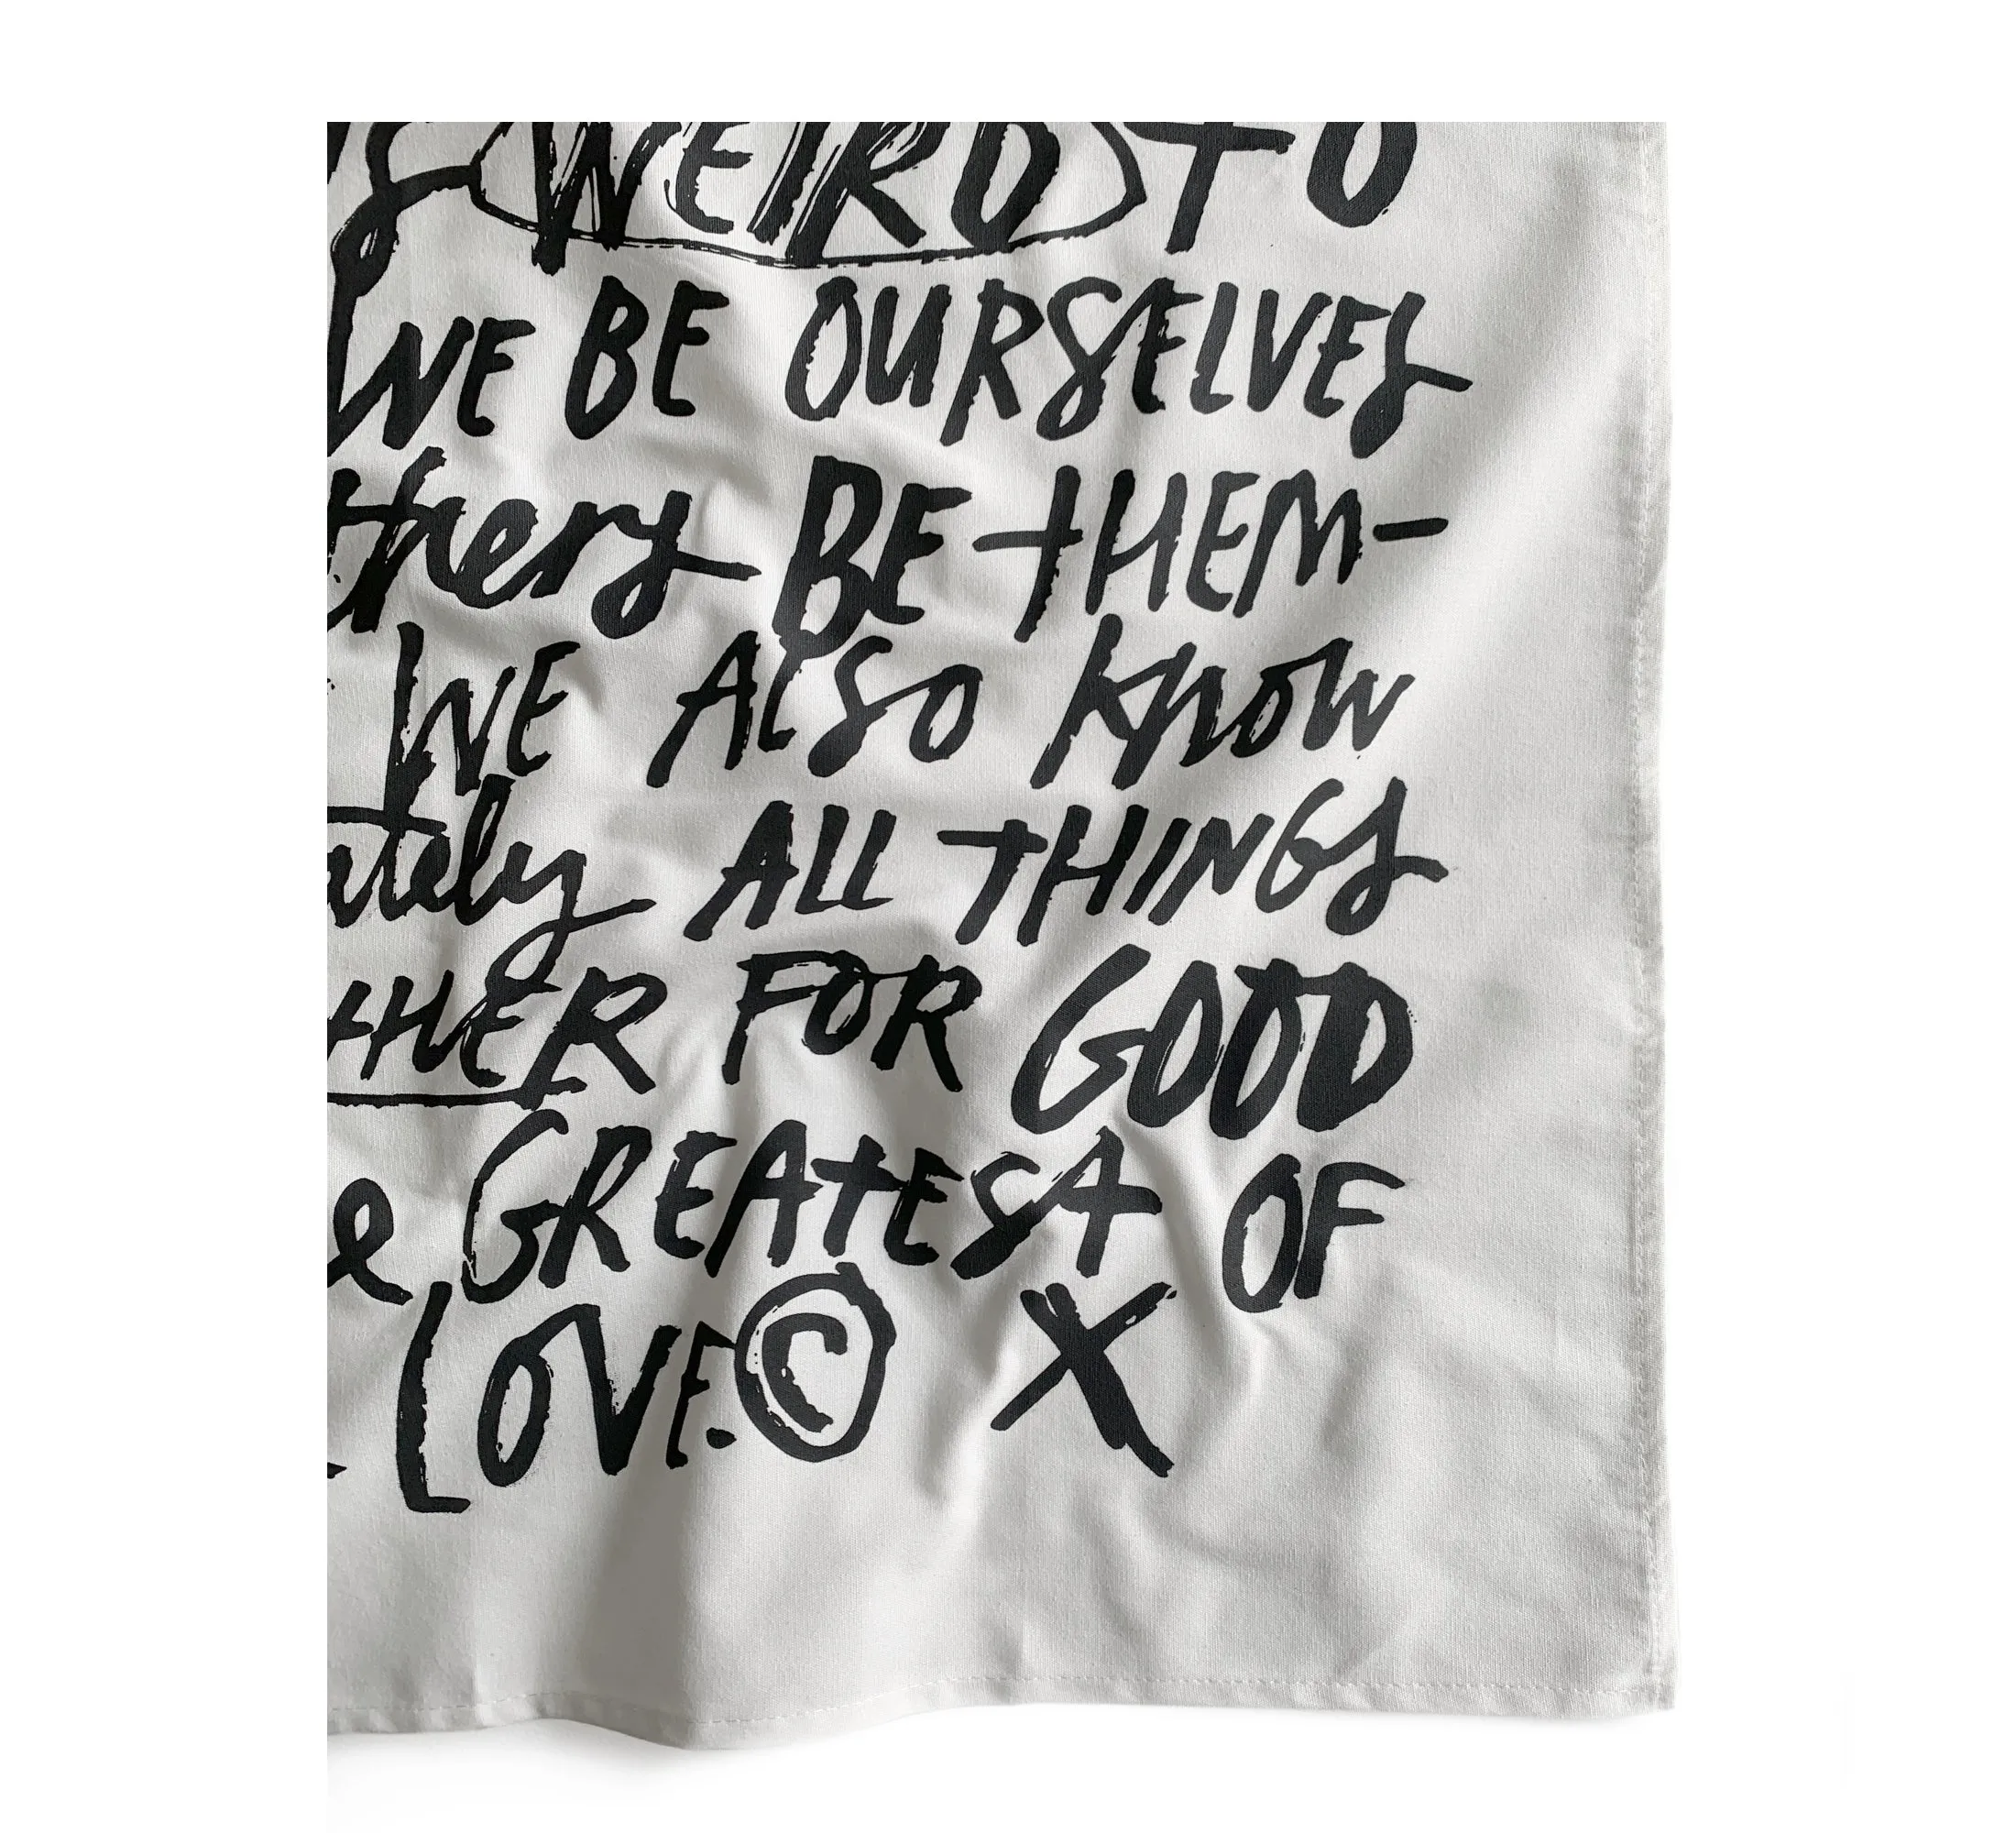 WEIRD TO
WE BE OURSELVES
thers BE THEM-
WE ALSO KNOW
ately ALL THINGS
THER FOR GOOD
e GREATEST OF
LOVE. © X